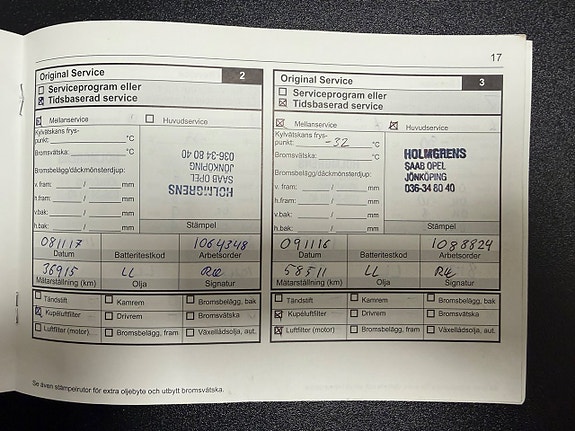 17
Original Service 2
Serviceprogram eller
Tidsbaserad service
Mellanservice Huvudservice
Kylvätskans frys-
punkt: °C
Bromsvätska: °C
Bromsbelägg/däckmönsterdjup:
v. fram: / mm
h. fram: / mm
v.bak: / mm
h. bak: / mm
HOLMGRENS
SAAB OPEL
JÖNKÖPING
036-34 80 40
Stämpel
081117 1064348
Datum Batteritestkod Arbetsorder
36915 LL
Mätarställning (km) Olja Signatur
Tändstift Kamrem Bromsbelägg, bak
Kupéluftfilter Drivrem Bromsvätska
Luftfilter (motor) Bromsbelägg, fram Växellådsolja, aut.
Original Service 3
Serviceprogram eller
Tidsbaserad service
Mellanservice Huvudservice
Kylvätskans frys-
punkt: -32 °C
Bromsvätska: °C
Bromsbelägg/däckmönsterdjup:
v. fram: / mm
h. fram: / mm
v.bak: / mm
h.bak: / mm
HOLMGRENS
SAAB OPEL
JÖNKÖPING
036-34 80 40
Stämpel
091116 1088824
Datum Batteritestkod Arbetsorder
58511 LL
Mätarställning (km) Olja Signatur
Tändstift Kamrem Bromsbelägg, bak
Kupéluftfilter Drivrem Bromsvätska
Luftfilter (motor) Bromsbelägg, fram Växellådsolja, aut.
Se även stämpelrutor för extra oljebyte och utbytt bromsvätska.